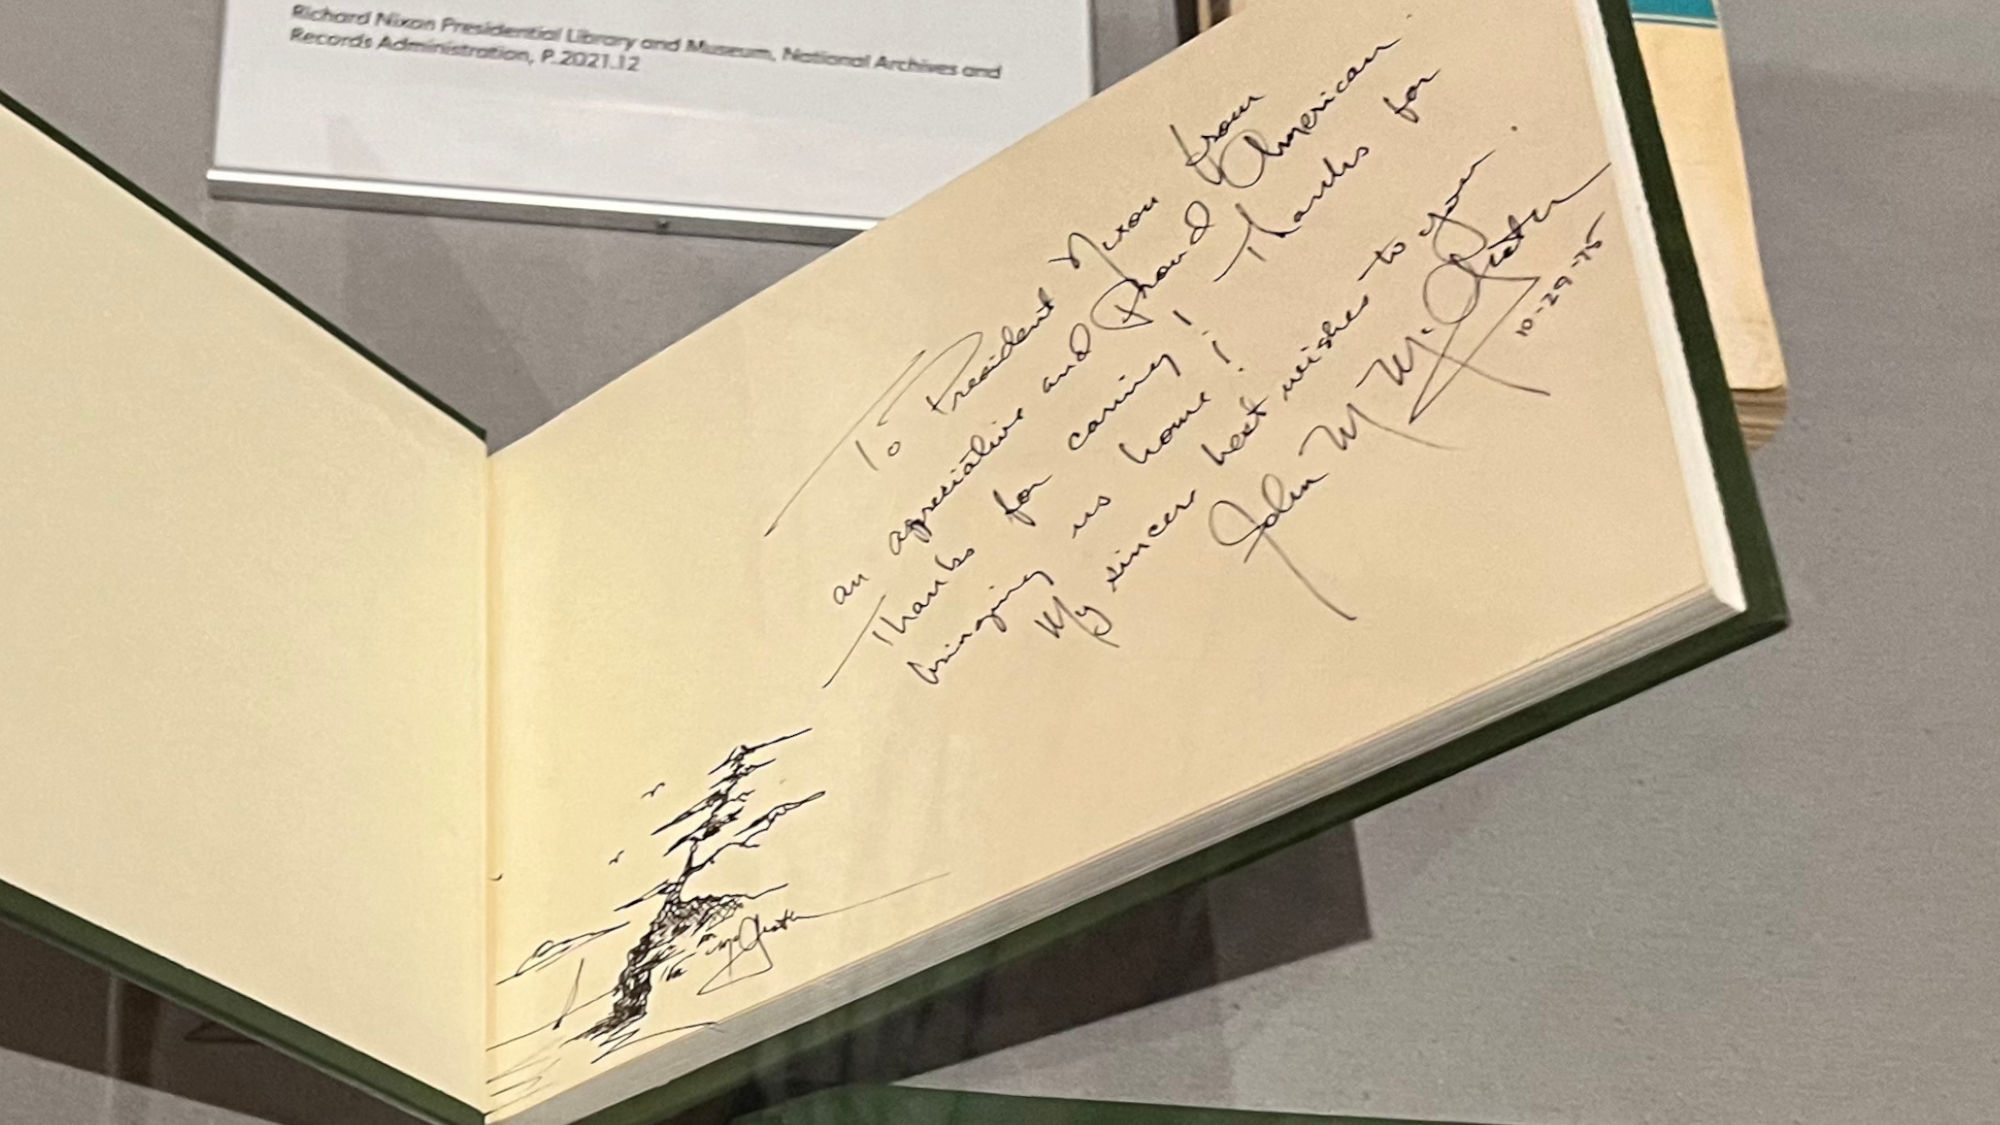 Richard Nixon Presidential Library and Museum, National Archives and
Records Administration, P.2021.12
To President Nixon from
an appreciative and Proud American
Thanks for caring! Thanks for
bringing us home!
My sincere best wishes to you.
John M McGrath
10-29-75
McGrath